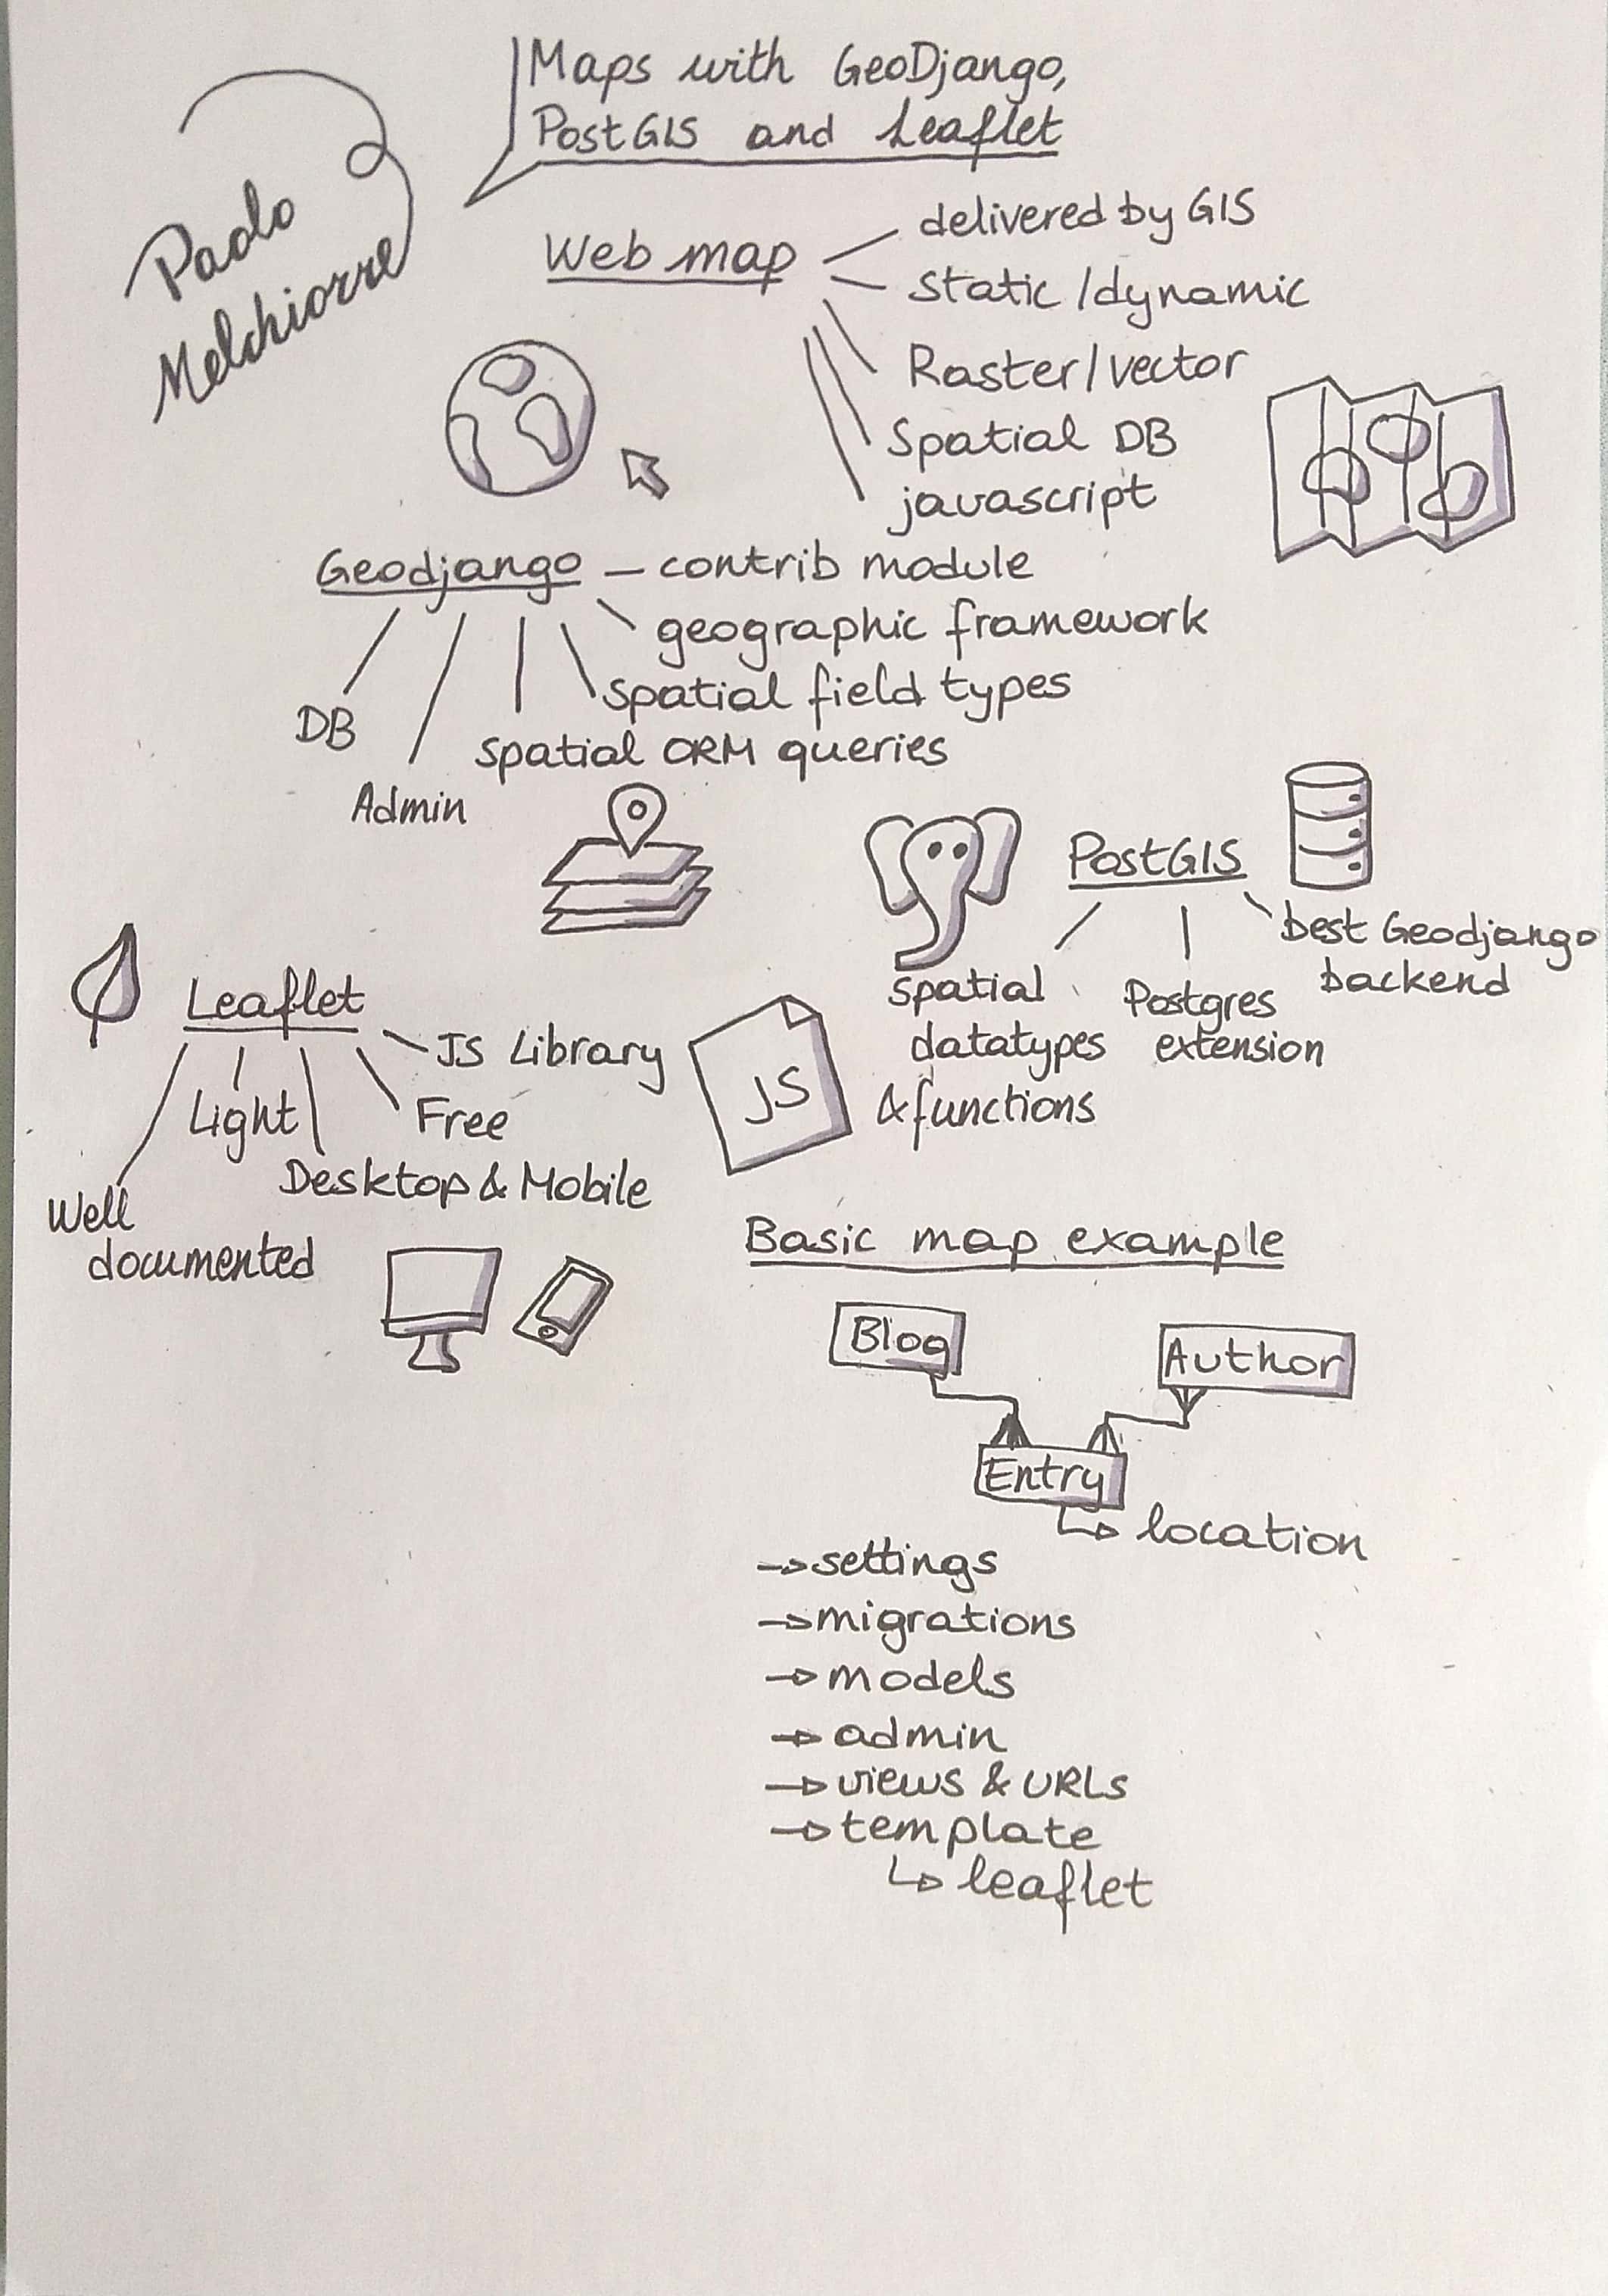 Maps with GeoDjango,
PostGIS and Leaflet
Paolo
Melchiorre
Web map
delivered by GIS
static / dynamic
Raster / vector
Spatial DB
javascript
Geodjango
contrib module
geographic framework
spatial field types
spatial ORM queries
Admin
DB
PostGIS
best Geodjango
backend
Postgres
extension
spatial
datatypes
& functions
Leaflet
JS Library
Free
Desktop & Mobile
Light
Well
documented
JS
Basic map example
Blog
Author
Entry
location
settings
migrations
models
admin
views & URLs
template
leaflet